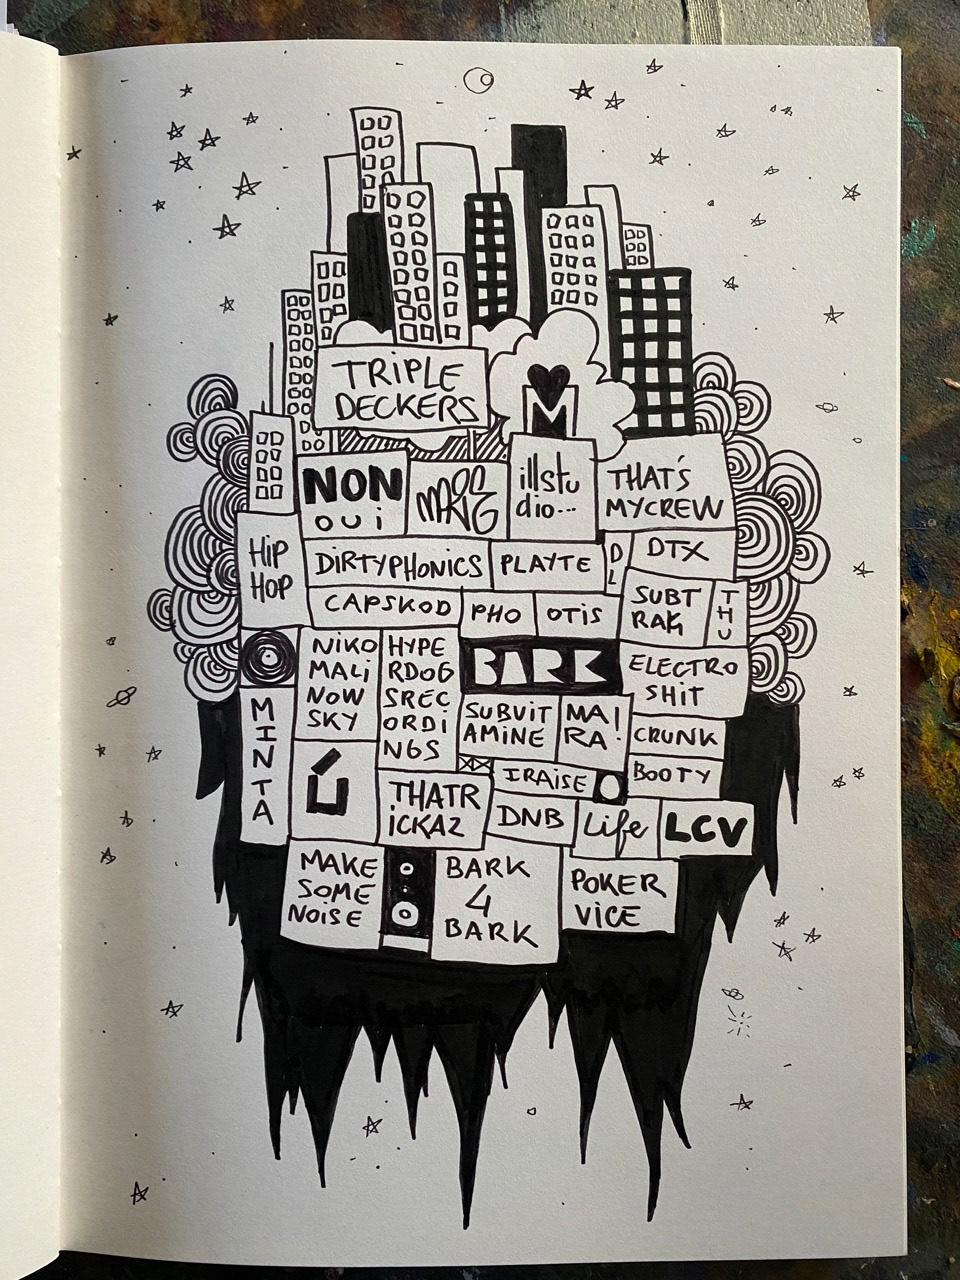 TRIPLE
DECKERS
M
NON
oui
illstu
dio...
THAT'S
MYCREW
HiP
HOP
DiRTYPHONiCS
PLAYTE
DL
DTX
CAPSKOD
PHO
OTiS
SUBT
RAK
THU
NiKO
MALi
NOW
SKY
HYPE
RDOG
SREC
ORDi
NGS
BARK
ELECTRO
SHiT
MINTA
SUBViT
AMiNE
MA!
RA!
CRUNK
Ú
IRAiSE
BOOTY
THATR
iCKAZ
DNB
Life
LCV
MAKE
SOME
NOiSE
BARK
4
BARK
POKER
ViCE